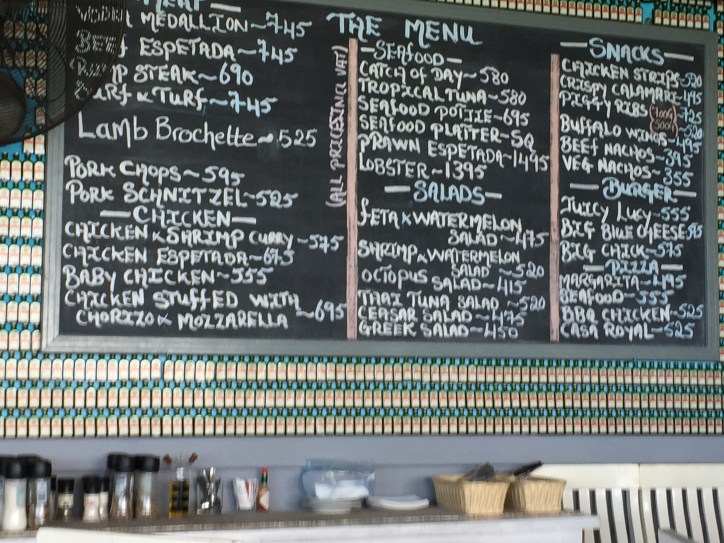 THE MENU
MEDALLION~745
BEEF ESPETADA~745
STEAK~690
SURF & TURF~745
Lamb Brochette~525
PORK CHOPS~595
PORK SCHNITZEL~525
—CHICKEN—
CHICKEN & SHRIMP CURRY~575
CHICKEN ESPETADA~675
BABY CHICKEN~555
CHICKEN STUFFED WITH ~695
CHORIZO & MOZZARELLA
(ALL PRICES INCL VAT)
—SEAFOOD—
CATCH OF DAY~580
TROPICAL TUNA~580
SEAFOOD POTJIE~695
SEAFOOD PLATTER~SQ
PRAWN ESPETADA~1495
LOBSTER~1395
—SALADS—
FETA & WATERMELON
SALAD~475
SHRIMP & WATERMELON
SALAD~520
OCTOPUS SALAD~415
THAI TUNA SALAD~520
CEASAR SALAD~475
GREEK SALAD~450
—SNACKS—
CHICKEN STRIPS~520
CRISPY CALAMARI~475
PIGGY RIBS
BUFFALO WINGS~495
BEEF NACHOS~395
VEG NACHOS~355
—BURGER—
JUICY LUCY~555
BIG BLUE CHEESE
BIG CHICK~575
—PIZZA—
MARGARITA~495
SEAFOOD~555
BBQ CHICKEN~525
CASA ROYAL~525